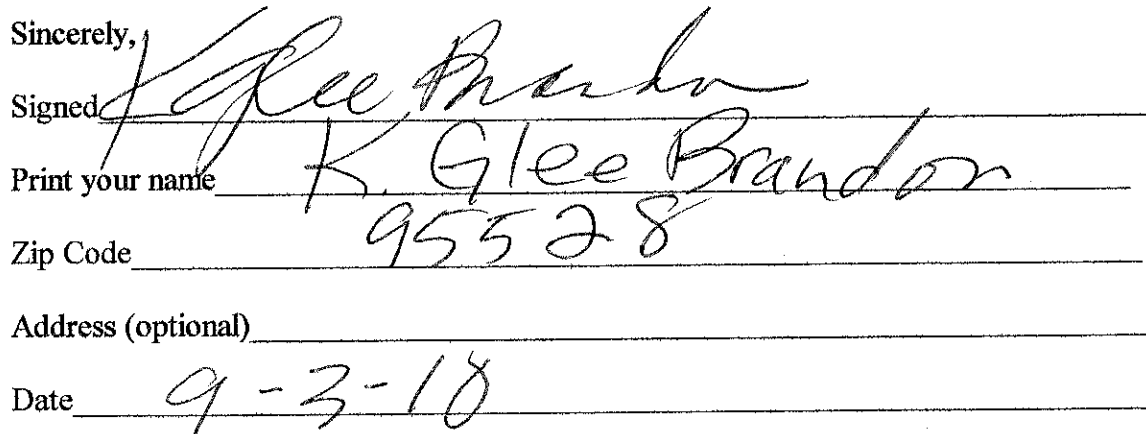 Sincerely,
Signed K Glee Brandon
Print your name K. Glee Brandon
Zip Code 95528
Address (optional)
Date 9-3-18